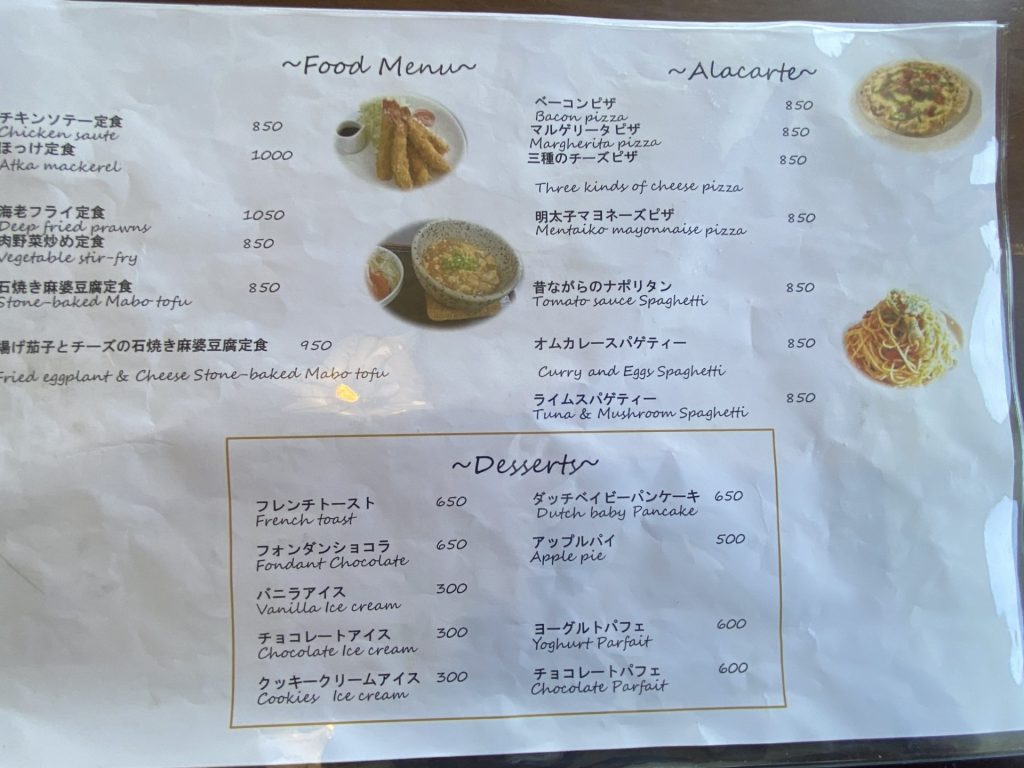 ~Food Menu~
チキンソテー定食 850
Chicken saute
ほっけ定食 1000
Atka mackerel
海老フライ定食 1050
Deep fried prawns
肉野菜炒め定食 850
Vegetable stir-fry
石焼き麻婆豆腐定食 850
Stone-baked Mabo tofu
揚げ茄子とチーズの石焼き麻婆豆腐定食 950
Fried eggplant & Cheese Stone-baked Mabo tofu
~Alacarte~
ベーコンピザ 850
Bacon pizza
マルゲリータピザ 850
Margherita pizza
三種のチーズピザ 850
Three kinds of cheese pizza
明太子マヨネーズピザ 850
Mentaiko mayonnaise pizza
昔ながらのナポリタン 850
Tomato sauce Spaghetti
オムカレースパゲティー 850
Curry and Eggs Spaghetti
ライムスパゲティー 850
Tuna & Mushroom Spaghetti
~Desserts~
フレンチトースト 650
French toast
フォンダンショコラ 650
Fondant Chocolate
バニラアイス 300
Vanilla Ice cream
チョコレートアイス 300
Chocolate Ice cream
クッキークリームアイス 300
Cookies Ice cream
ダッチベイビーパンケーキ 650
Dutch baby Pancake
アップルパイ 500
Apple pie
ヨーグルトパフェ 600
Yoghurt Parfait
チョコレートパフェ 600
Chocolate Parfait